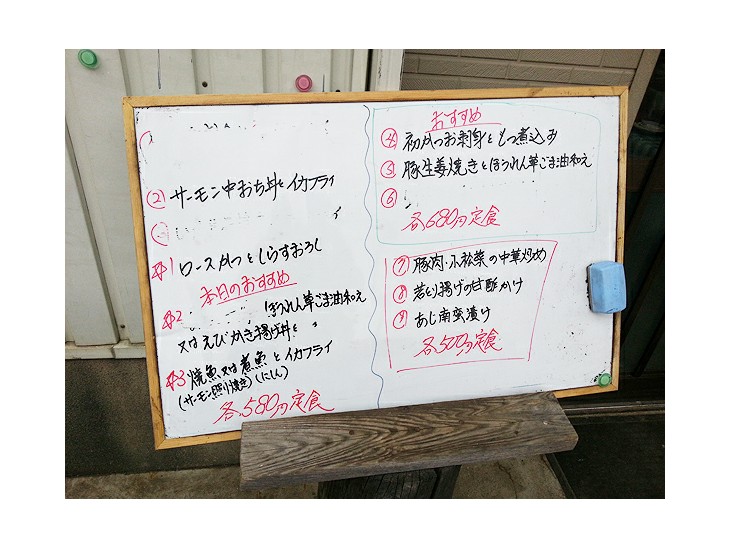 ② サーモン中おち丼とイカフライ
1 ロースかつとしらすおろし
本日のおすすめ
2 ほうれん草ごま油和え
又はえびかき揚げ丼と
3 焼魚又は煮魚とイカフライ
(サーモン照り焼き) (にしん)
各580円定食
おすすめ
④ 初かつお刺身ともつ煮込み
⑤ 豚生姜焼きとほうれん草ごま油和え
⑥
各680円定食
⑦ 豚肉・小松菜の中華炒め
⑧ 若とり揚げの甘酢かけ
⑨ あじ南蛮漬け
各500円定食